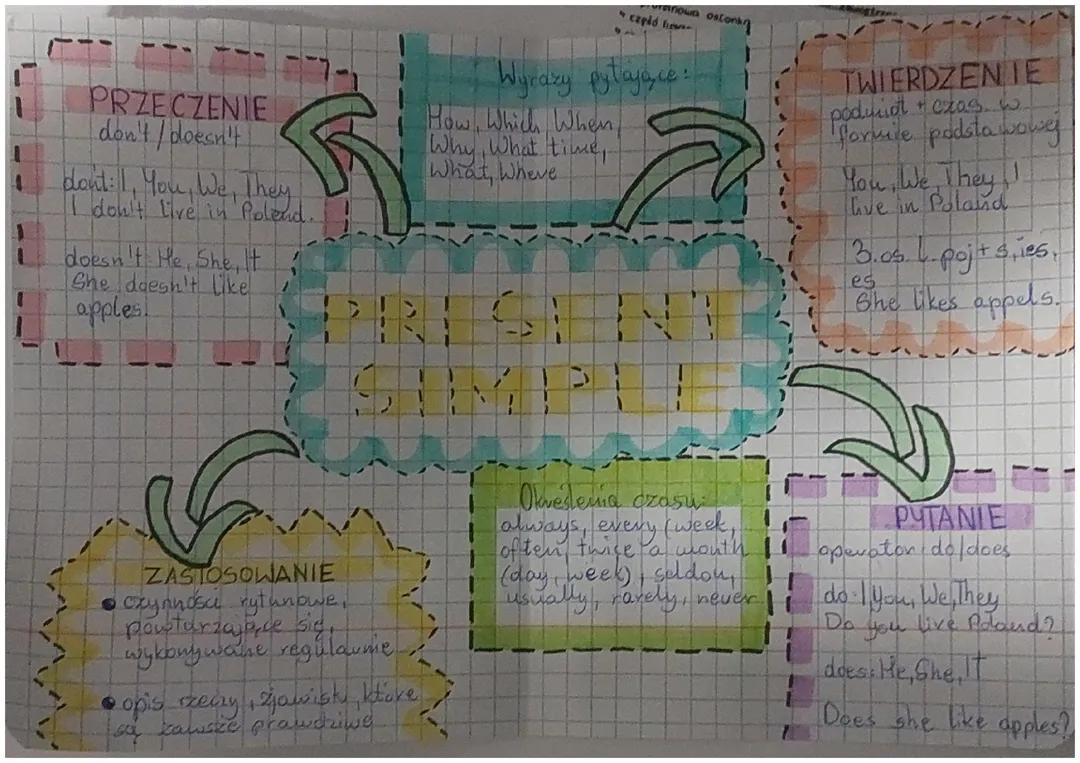 czpld
PRZECZENIE
don't / doesn't
dont: I, You, We, They
I don't live in Polend.
doesn't: He, She, It
She doesn't like
apples.
Wyrazy pytające:
How, Which When,
Why, What time,
What, Where
TWIERDZENIE
podmiot + czas. w
formie podstawowej
You, We, They, I
live in Poland
3.os. l. poj + s, ies,
es
She likes appels.
PRESENT
SIMPLE
ZASTOSOWANIE
• czynności rytunowe,
powtarzające się,
wykonywane regularnie
• opis rzeczy, zjawisk, które
są zawsze prawdziwe
Określenia czasu:
always, every (week,
often, twice a month
(day, week), seldon,
usually, rarely, never
PYTANIE
operator: do/does
do: I, you, We, They
Do you live Poland?
does: He, She, It
Does she like apples?